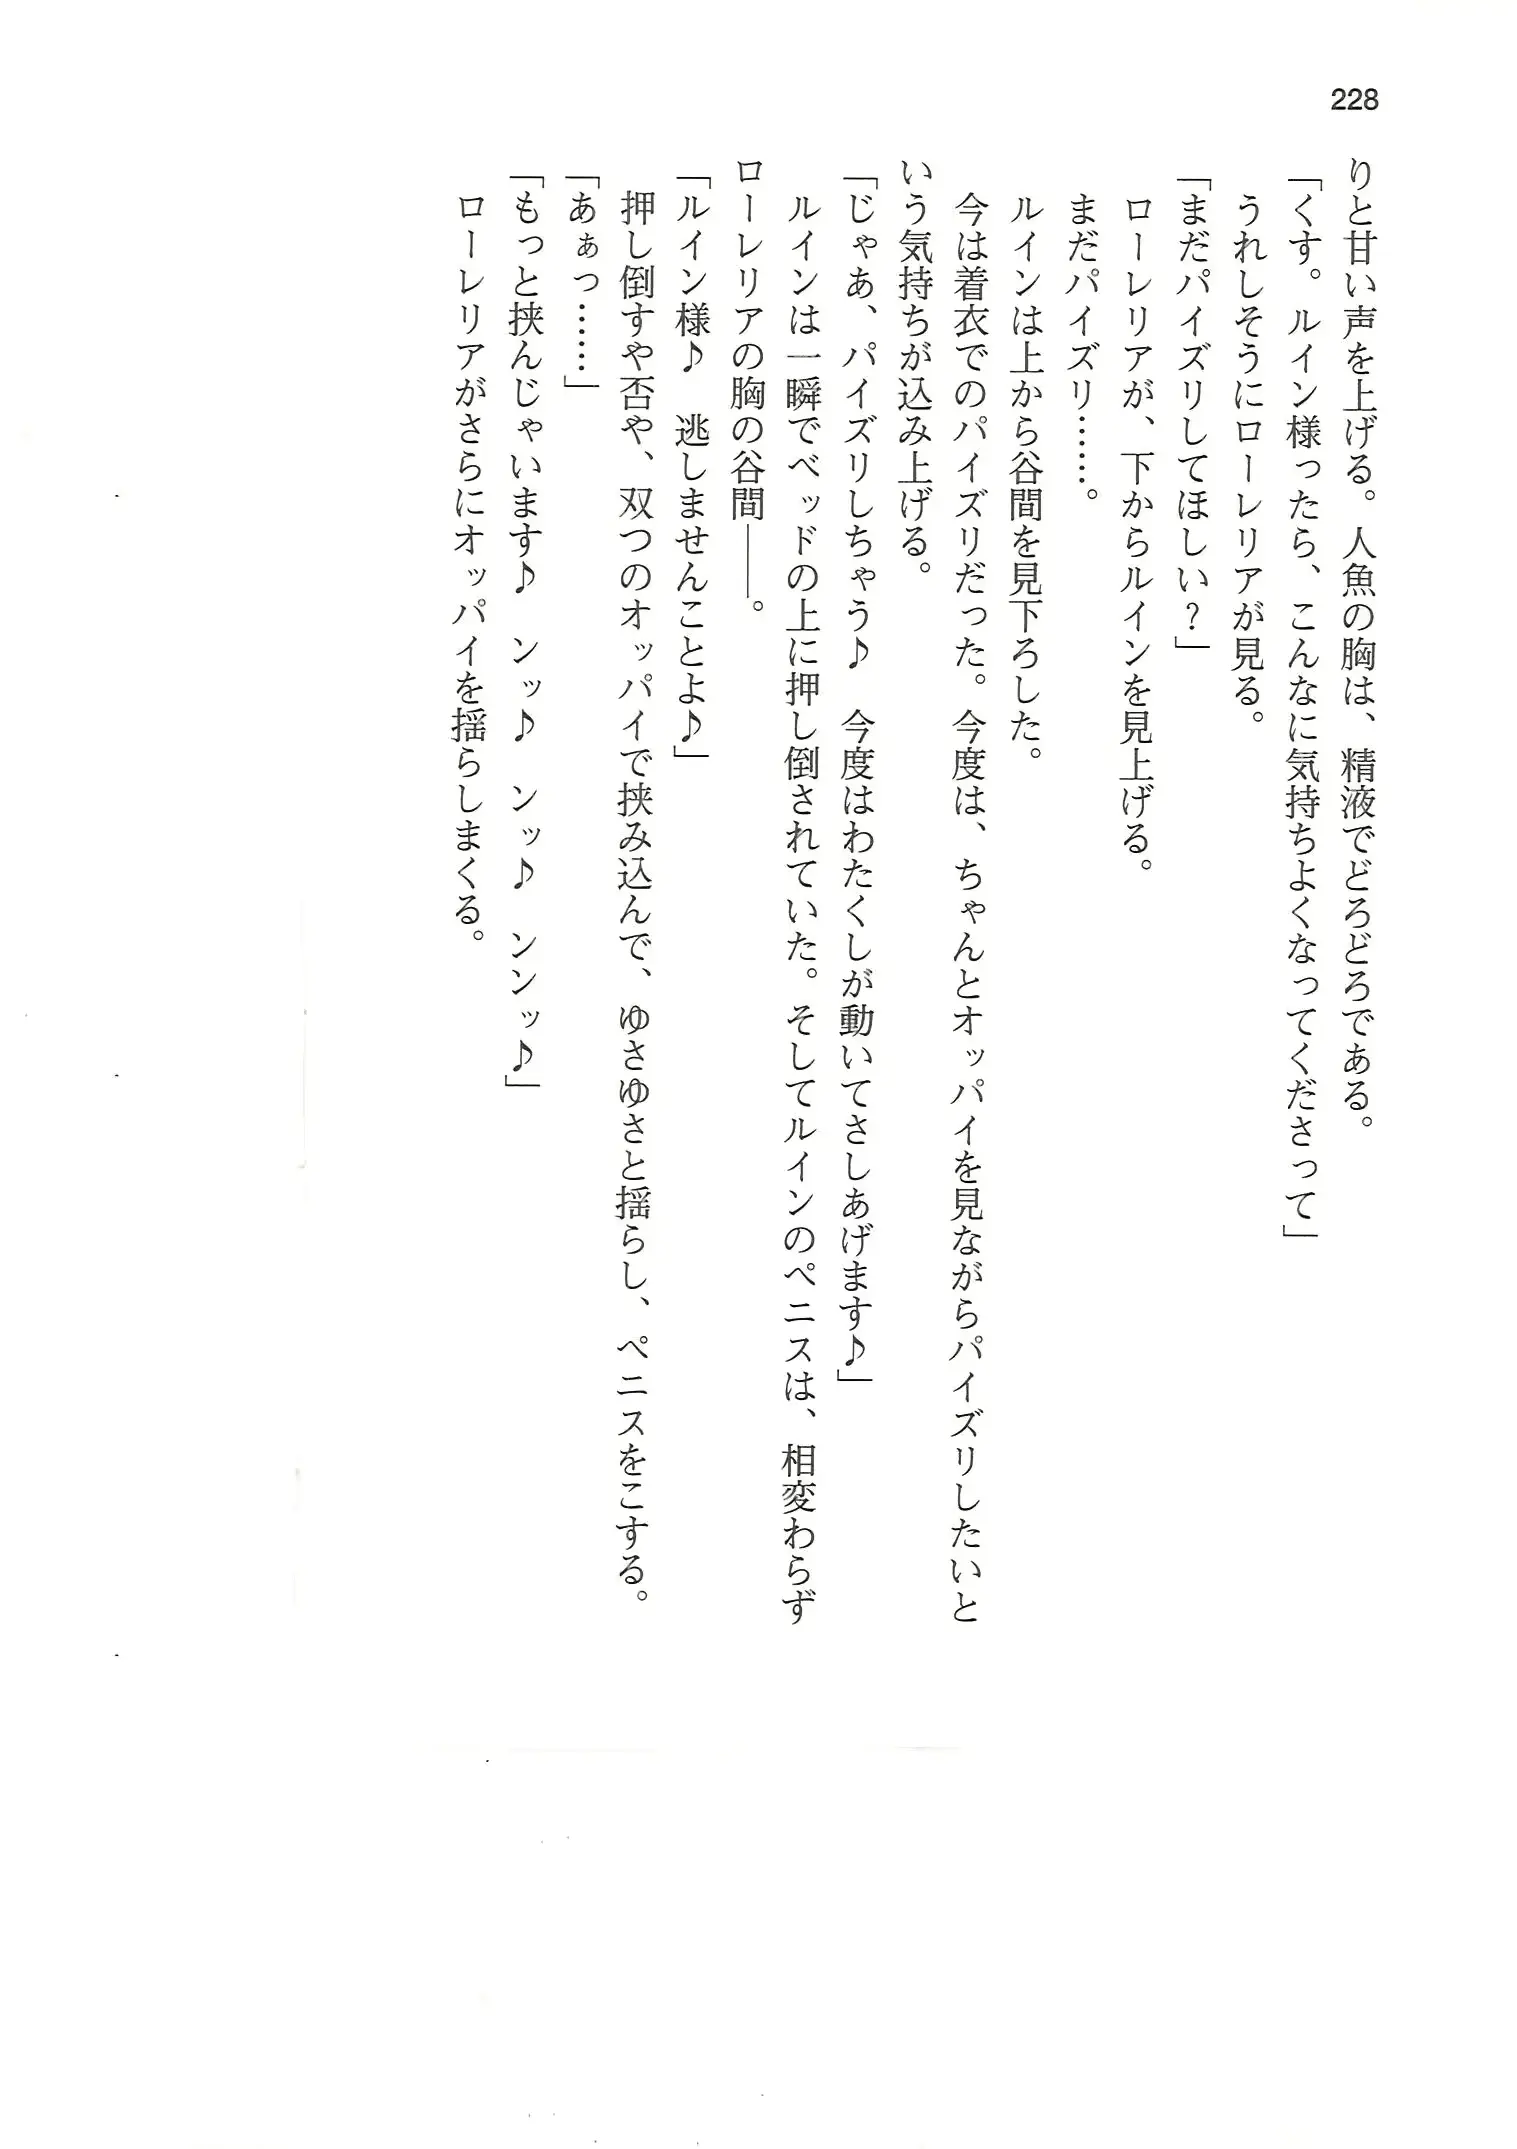 228
りと甘い声を上げる。人魚の胸は、精液でどろどろである。
「くす。ルイン様ったら、こんなに気持ちよくなってくださって」
うれしそうにローレリアが見る。
「まだパイズリしてほしい？」
ローレリアが、下からルインを見上げる。
まだパイズリ……。
ルインは上から谷間を見下ろした。
今は着衣でのパイズリだった。今度は、ちゃんとオッパイを見ながらパイズリしたいと
いう気持ちが込み上げる。
「じゃあ、パイズリしちゃう♪　今度はわたくしが動いてさしあげます♪」
ルインは一瞬でベッドの上に押し倒されていた。そしてルインのペニスは、相変わらず
ローレリアの胸の谷間――。
「ルイン様♪　逃しませんことよ♪」
押し倒すや否や、双つのオッパイで挟み込んで、ゆさゆさと揺らし、ペニスをこする。
「あぁっ……」
「もっと挟んじゃいます♪　ンッ♪　ンッ♪　ンンッ♪」
ローレリアがさらにオッパイを揺らしまくる。